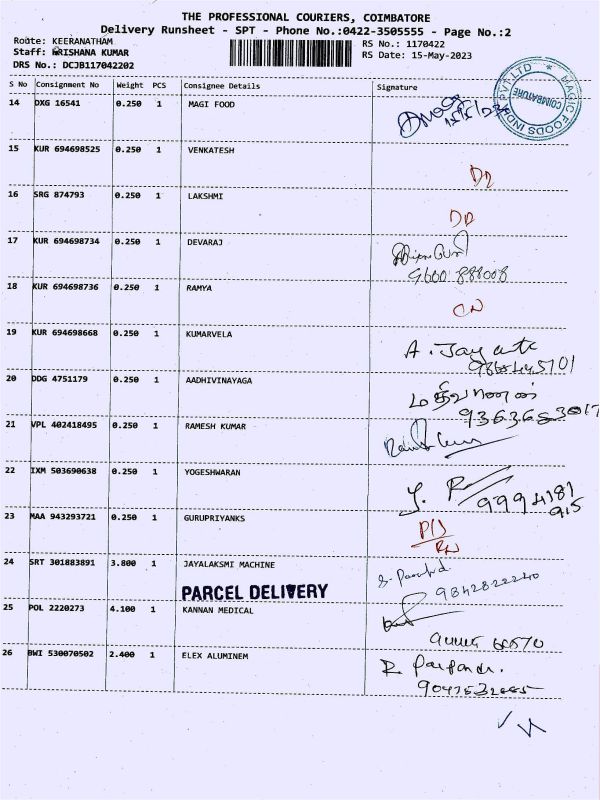 THE PROFESSIONAL COURIERS, COIMBATORE
Delivery Runsheet - SPT - Phone No.:0422-3505555 - Page No.:2
Route: KEERANATHAM RS No.: 1170422
Staff: HRISHANA KUMAR RS Date: 15-May-2023
DRS No.: DCJB117042202
S No Consignment No Weight PCS Consignee Details Signature
14 DXG 16541 0.250 1 MAGI FOOD
MAGIC FOODS INDIA PVT LTD
COIMBATORE
15 KUR 694698525 0.250 1 VENKATESH DD
16 SRG 874793 0.250 1 LAKSHMI DD
17 KUR 694698734 0.250 1 DEVARAJ
9600 888008
18 KUR 694698736 0.250 1 RAMYA CN
19 KUR 694698668 0.250 1 KUMARVELA A. Jay
20 DDG 4751179 0.250 1 AADHIVINAYAGA
21 VPL 402418495 0.250 1 RAMESH KUMAR
22 IXM 503690638 0.250 1 YOGESHWARAN Y. R 9994181
915
23 MAA 943293721 0.250 1 GURUPRIYANKS
24 SRT 301883891 3.800 1 JAYALAKSMI MACHINE
9842822240
PARCEL DELIVERY
25 POL 2220273 4.100 1 KANNAN MEDICAL
26 BWI 530070502 2.400 1 ELEX ALUMINEM R.